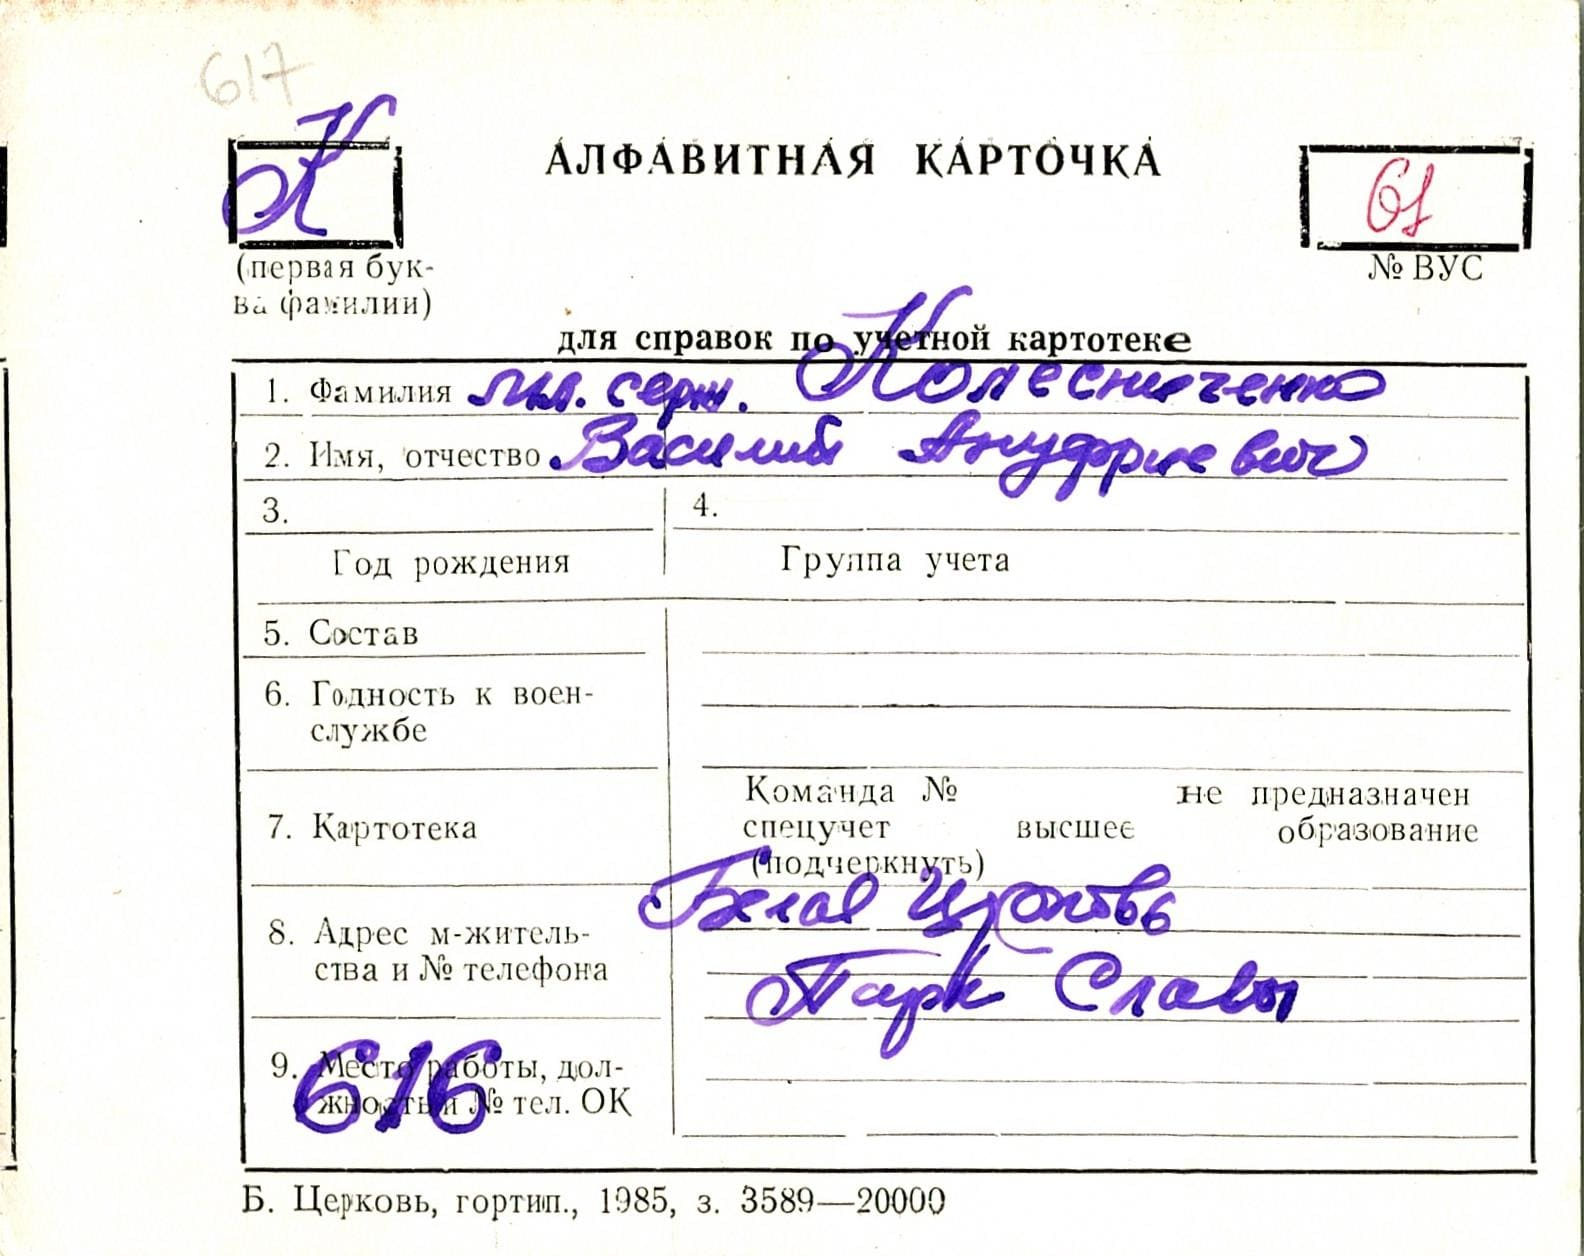 617
К
АЛФАВИТНАЯ КАРТОЧКА
61
(первая бук-
ва фамилии)
№ ВУС
для справок по учетной картотеке
1. Фамилия мл. серж. Колесниченко
2. Имя, отчество Василий Ануфриевич
3.
4.
Год рождения
Группа учета
5. Состав
6. Годность к воен-
службе
7. Картотека
Команда № не предназначен
спецучет высшее образование
(подчеркнуть)
8. Адрес м-житель-
ства и № телефона
Белая Церковь
Парк Славы
9. Место работы, дол-
жность и № тел. ОК
616
Б. Церковь, гортип., 1985, з. 3589—20000